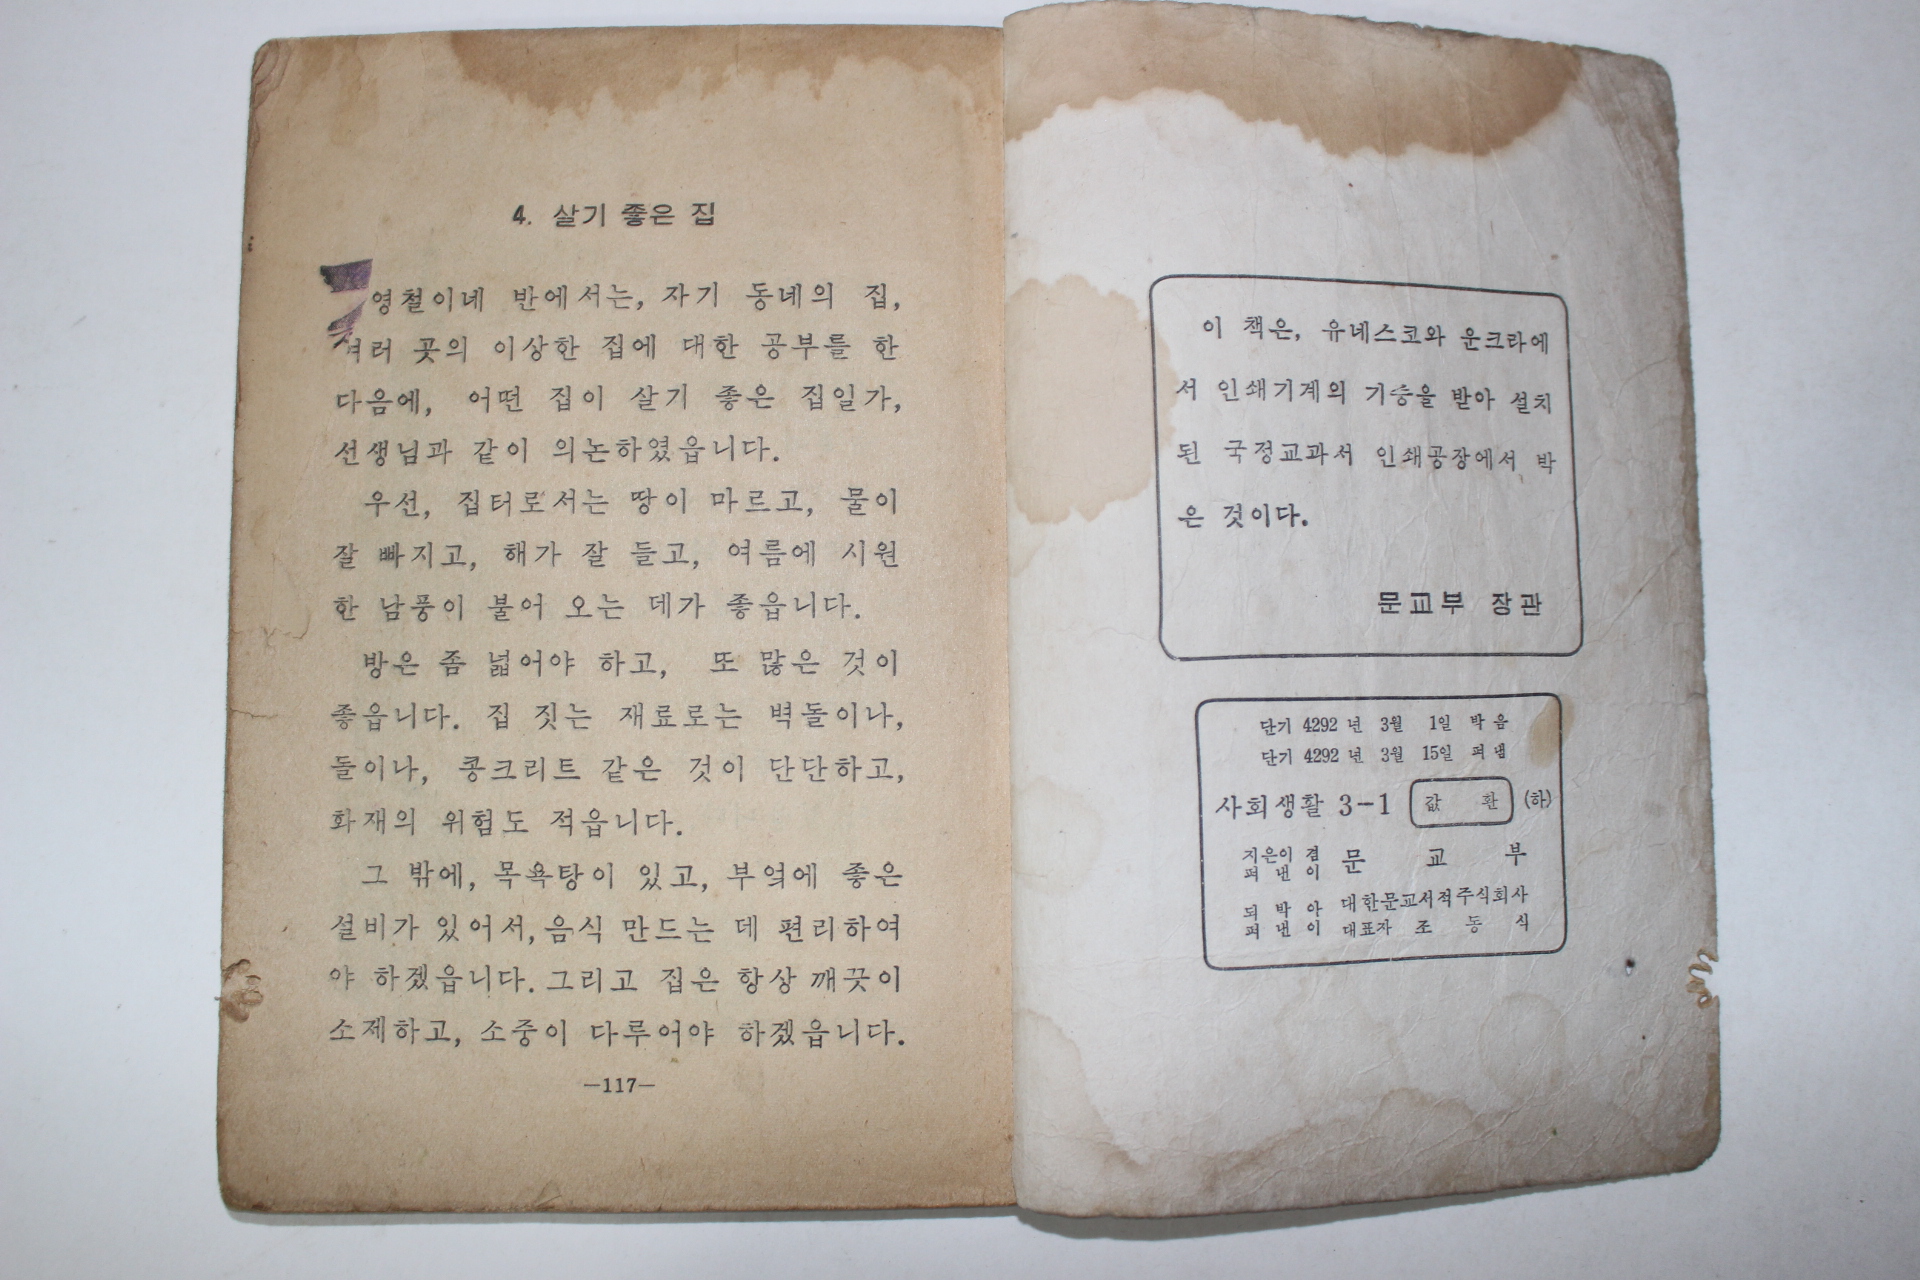 4. 살기 좋은 집
영철이네 반에서는, 자기 동네의 집,
여러 곳의 이상한 집에 대한 공부를 한
다음에, 어떤 집이 살기 좋은 집일가,
선생님과 같이 의논하였읍니다.
우선, 집터로서는 땅이 마르고, 물이
잘 빠지고, 해가 잘 들고, 여름에 시원
한 남풍이 불어 오는 데가 좋읍니다.
방은 좀 넓어야 하고, 또 많은 것이
좋읍니다. 집 짓는 재료로는 벽돌이나,
돌이나, 콩크리트 같은 것이 단단하고,
화재의 위험도 적읍니다.
그 밖에, 목욕탕이 있고, 부엌에 좋은
설비가 있어서, 음식 만드는 데 편리하여
야 하겠읍니다. 그리고 집은 항상 깨끗이
소제하고, 소중이 다루어야 하겠읍니다.
—117—
이 책은, 유네스코와 운크라에
서 인쇄기계의 기증을 받아 설치
된 국정교과서 인쇄공장에서 박
은 것이다.
문교부 장관
단기 4292 년 3월 1일 박음
단기 4292 년 3월 15일 펴냄
사회생활 3-1 값 환 (하)
지은이 겸 문 교 부
펴 낸 이
되 박 아 대한문교서적주식회사
펴 낸 이 대표자 조 동 식